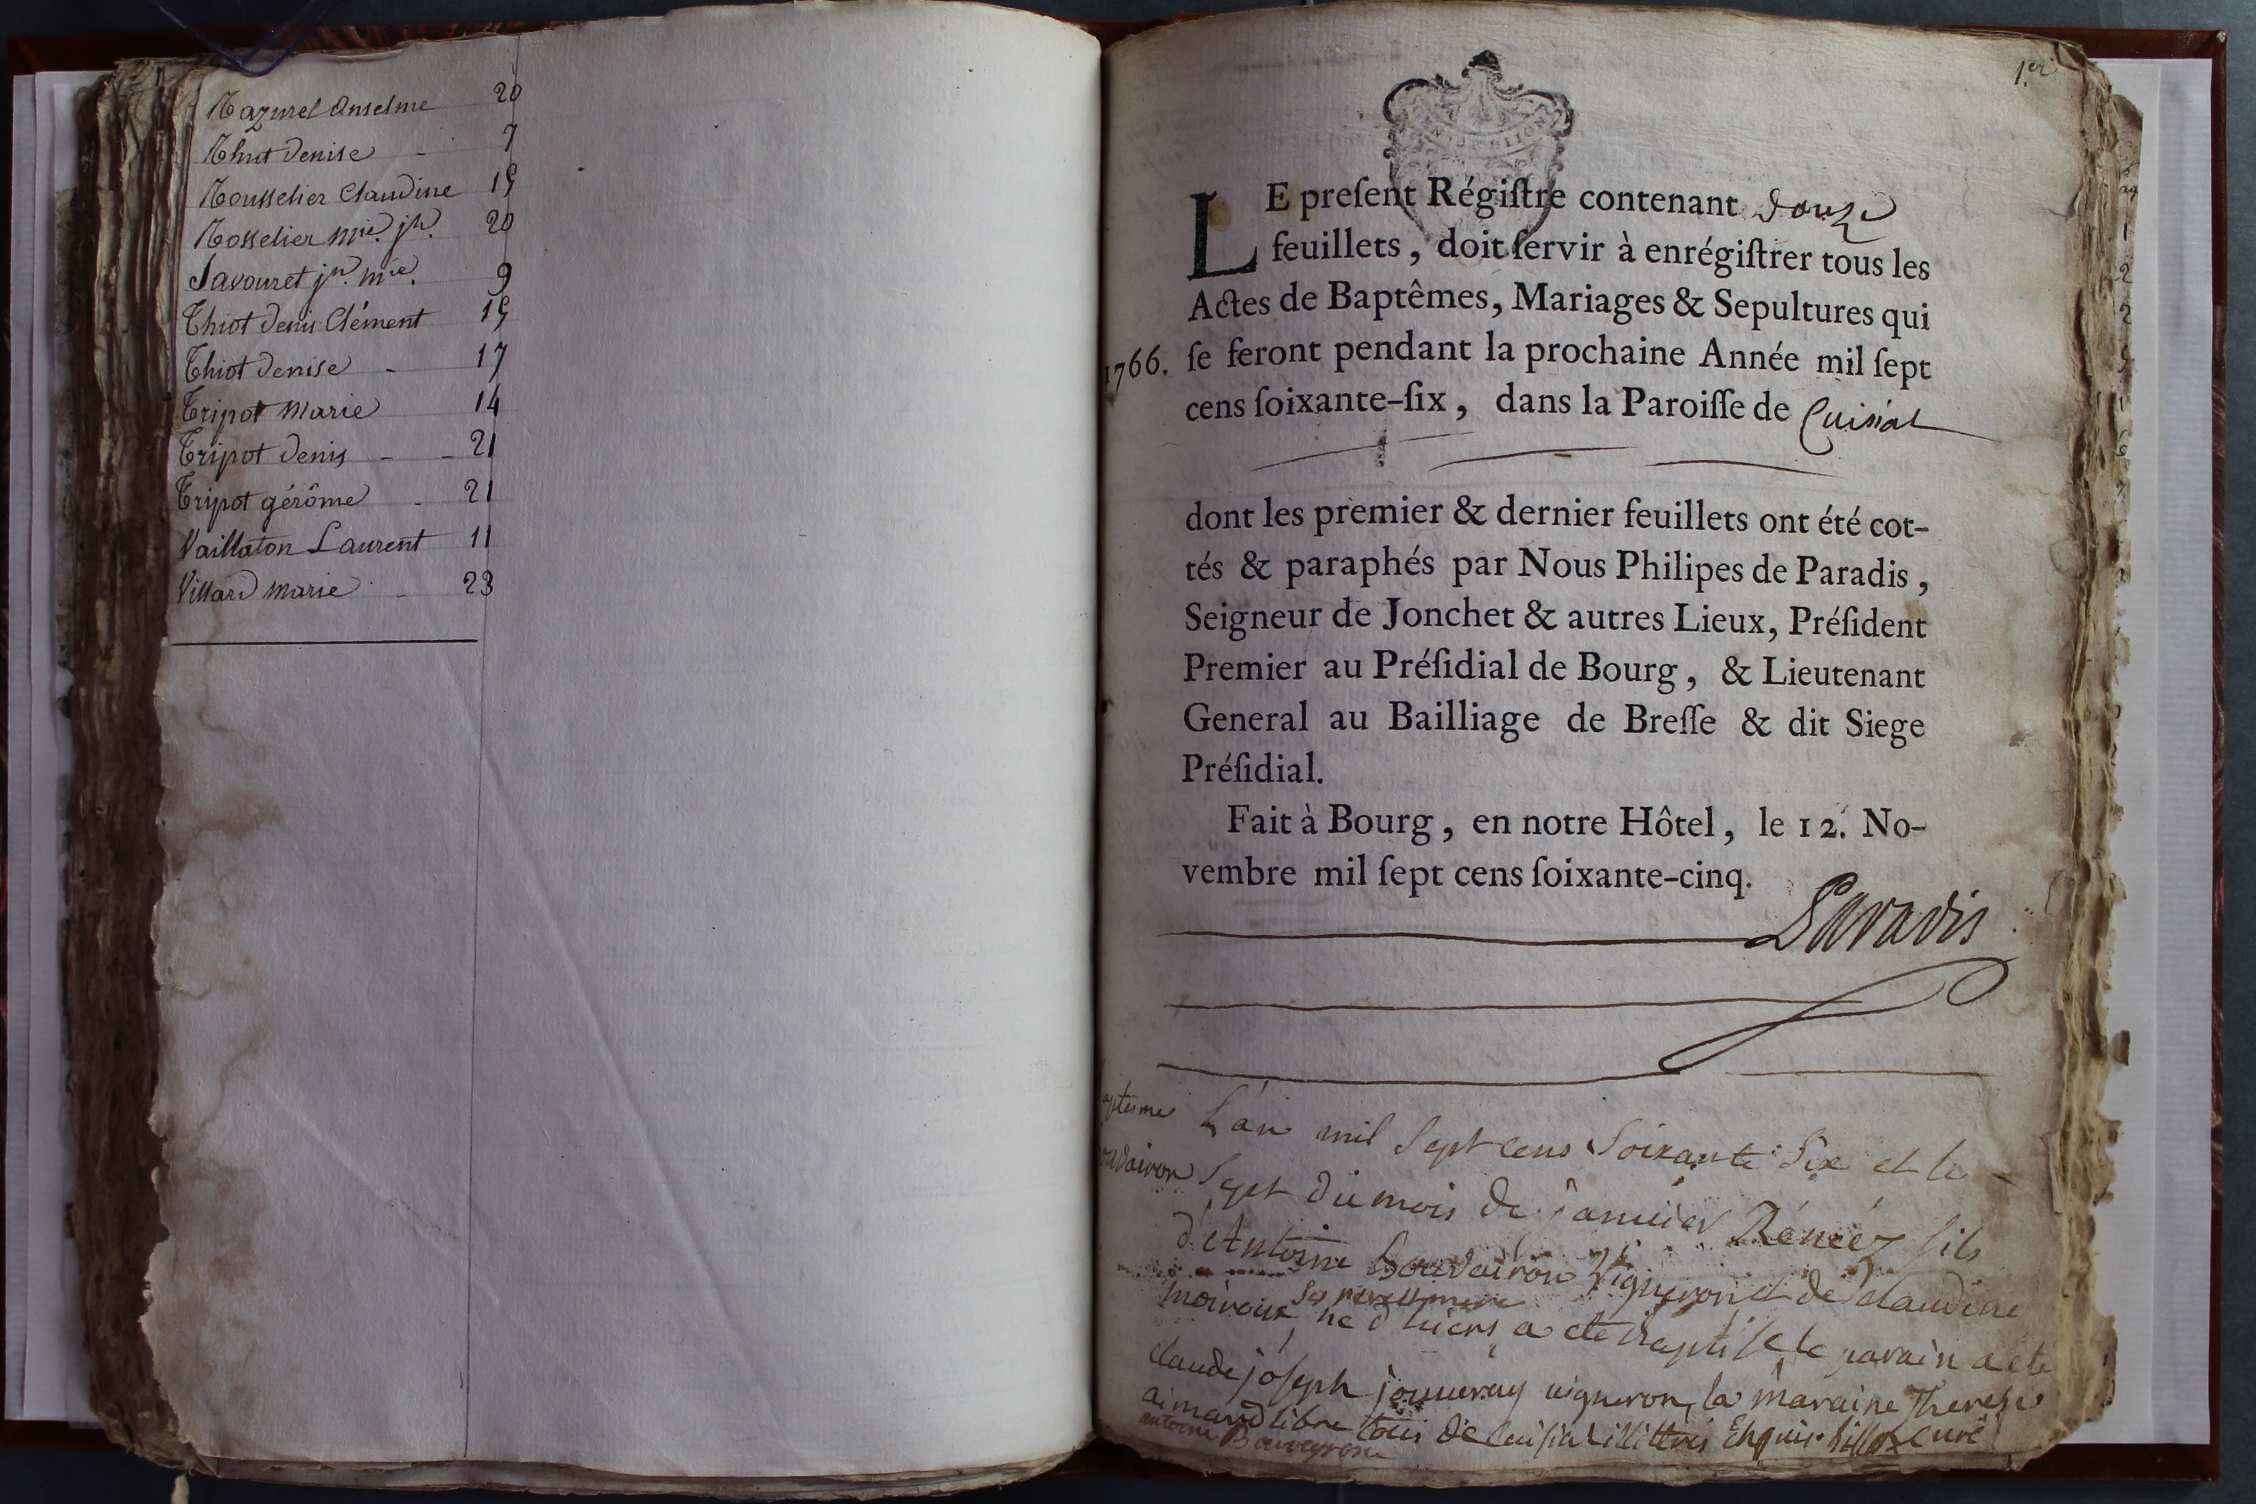 Razurel Anselme 20
Rhut denise - 7
Rousselier Claudine 15
Rosselier Mie. jh. 20
Savouret jn. mie. 9
Thiot denis Clément 15
Thiot denise - 17
Tripot Marie 14
Tripot denis - - 21
Tripot gérôme - 21
Vaillaton Laurent 11
Villard marie - 23
1.er
LE preſent Régiſtre contenant douze
feuillets, doit ſervir à enrégiſtrer tous les
Actes de Baptêmes, Mariages & Sepultures qui
1766. ſe feront pendant la prochaine Année mil ſept
cens ſoixante-ſix, dans la Paroiſſe de Cuisiat
dont les premier & dernier feuillets ont été cot-
tés & paraphés par Nous Philipes de Paradis,
Seigneur de Jonchet & autres Lieux, Préſident
Premier au Préſidial de Bourg, & Lieutenant
General au Bailliage de Breſſe & dit Siege
Préſidial.
Fait à Bourg, en notre Hôtel, le 12. No-
vembre mil ſept cens ſoixante-cinq.
Paradis
L'an mil Sept cens Soixante Six et le
Sept du mois de janvier Rénéez fils
d'Antoine Bouvairon Vigneron et de claudine
ses pere et mere
moiroux né d'hiers a été baptisé le parain a été
claude joseph jouveray vigneron, la maraine Therese
aimard libre tous de Cuisiat illittrés Enquis. curé
antoine Bouveyron